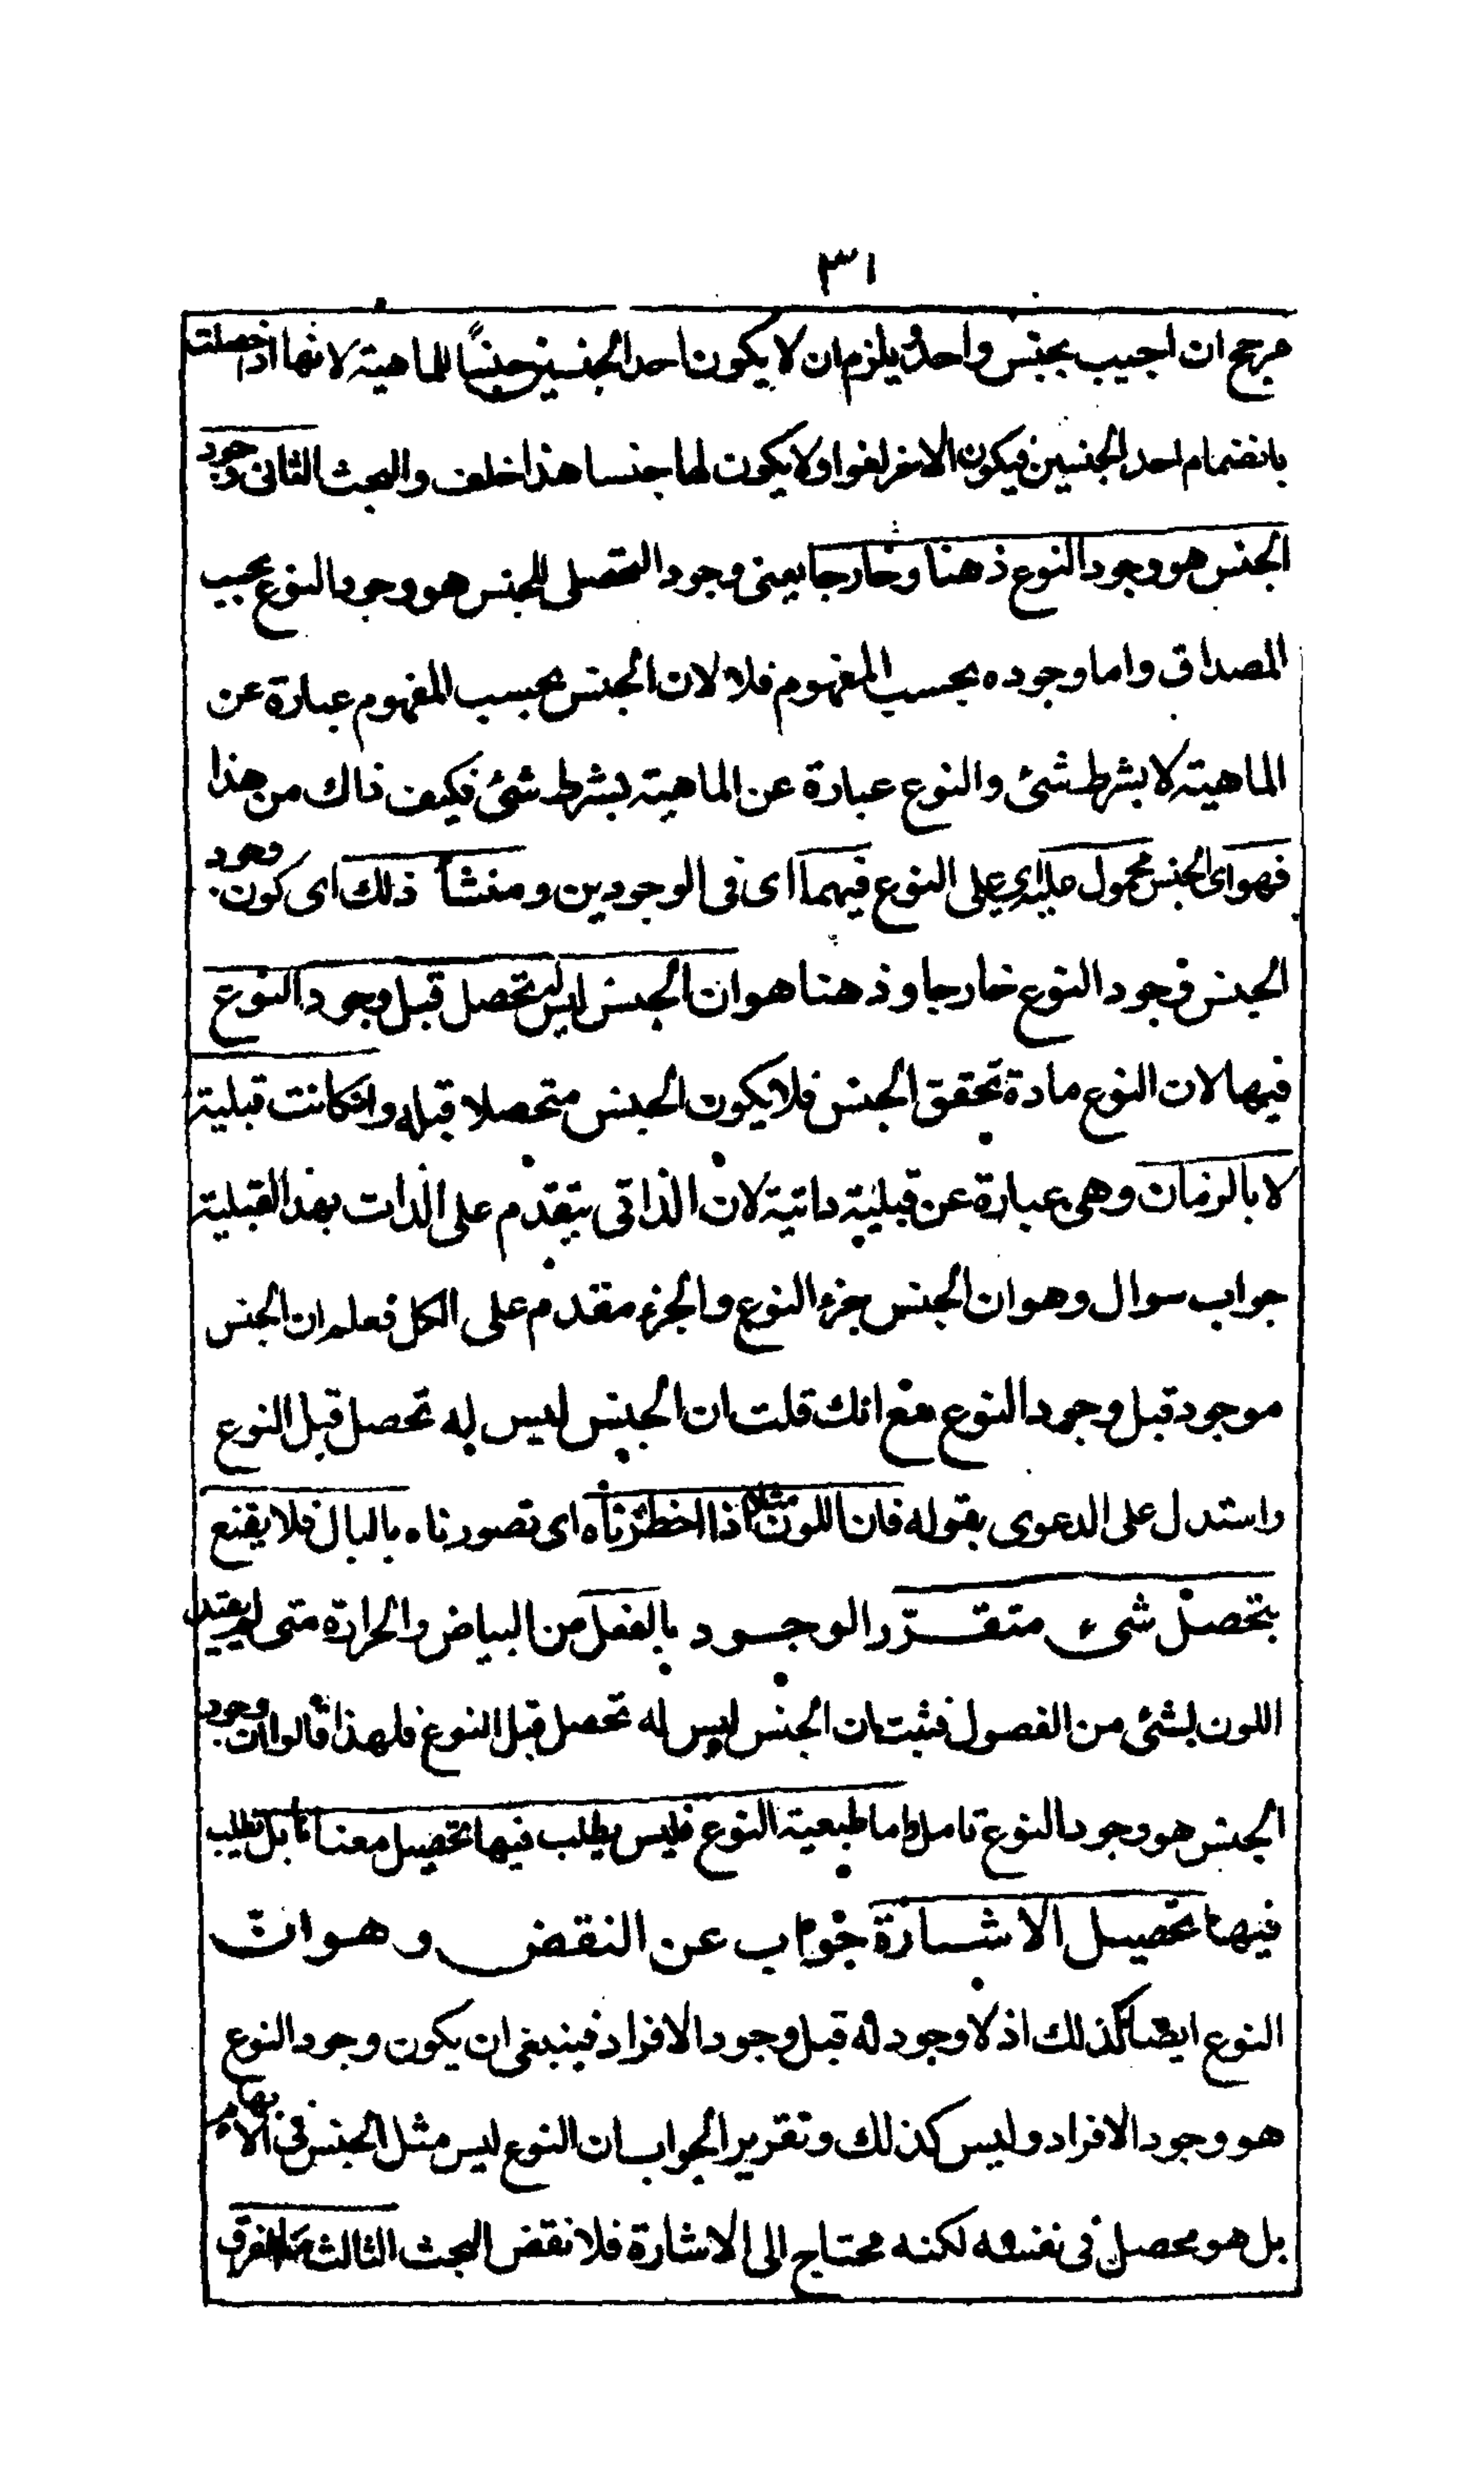 ٣١
مرجح ان اجيب بجنس واحد يلزم ان لا يكون احد الجنسين جنسًا للماهية لانها اذا حصلت
بانضمام احد الجنسين فيكون الاخر لغوا ولا يكون لها جنسا هذا خلف والبحث الثانى وجود
الجنس هو وجود النوع ذهنا وخارجا يعنى وجود التحصلى للجنس هو وجود النوع بحسب
المصداق واما وجوده بحسب المفهوم فلا لان الجنس بحسب المفهوم عبارة عن
الماهية لا بشرط شئ والنوع عبارة عن الماهية بشرط شئ فكيف ذاك من هذا
فهو اى الجنس محمول عليه اى على النوع فيهما اى فى الوجودين ومنشأ ذلك اى كون وجود
الجنس وجود النوع خارجا وذهنا هو ان الجنس ليس له تحصل قبل وجود النوع
فيهما لان النوع مادة تحقق الجنس فلا يكون الجنس متحصلا قبله وانكانت قبلية
لا بالزمان وهى عبارة عن قبلية ذاتية لان الذاتى يتقدم على الذات بهذا القبلية
جواب سوال وهو ان الجنس جزء النوع والجزء مقدم على الكل فعلم ان الجنس
موجود قبل وجود النوع مع انك قلت ان الجنس ليس له تحصل قبل النوع
واستدل على الدعوى بقوله فان اللون مثلا اذا اخطرناه اى تصورناه بالبال فلا يقنع
بتحصل شىء متقرّر الوجود بالفعل من البياض والحرارة متى لم يقيد
اللون بشئ من الفصول فثبت ان الجنس ليس له تحصل قبل النوع فلهذا قالوا ان وجود
الجنس هو وجود النوع تامل واما طبعية النوع فليس يطلب فيها تحصيل معناها بل يطلب
فيها تحصيل الاشارة جواب عن النقض وهو ان
النوع ايضا كذلك اذ لا وجود له قبل وجود الافراد فينبغى ان يكون وجود النوع
هو وجود الافراد وليس كذلك وتقرير الجواب ان النوع ليس مثل الجنس فى الابهام
بل هو محصل فى نفسه لكنه محتاج الى الاشارة فلا نقض البحث الثالث ما الفرق